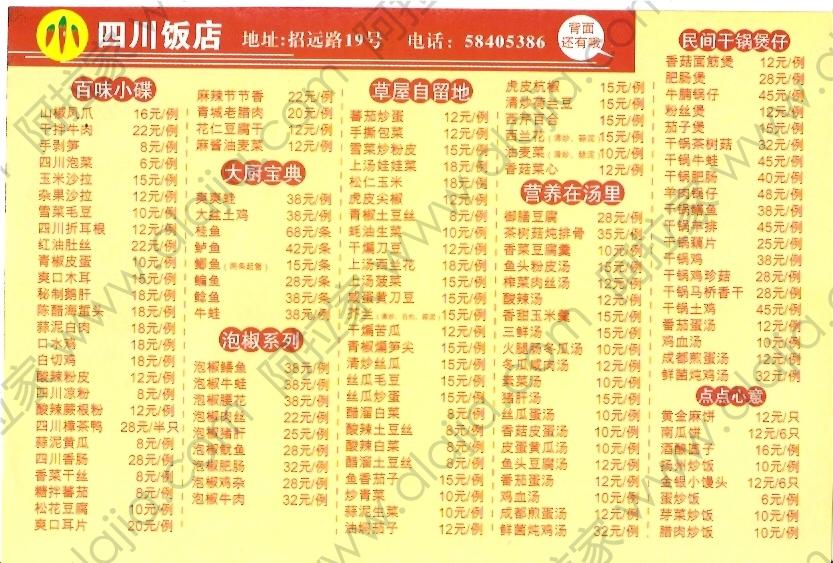 四川饭店
地址:招远路19号 电话:58405386
背面
还有哦
百味小碟
山椒凤爪 16元/例
干拌牛肉 22元/例
手剥笋 8元/例
四川泡菜 6元/例
玉米沙拉 15元/例
杂果沙拉 12元/例
雪菜毛豆 10元/例
四川折耳根 12元/例
红油肚丝 22元/例
青椒皮蛋 10元/例
爽口木耳 15元/例
秘制鹅肝 18元/例
陈醋海蜇头 18元/例
蒜泥白肉 18元/例
口水鸡 18元/例
白切鸡 18元/例
酸辣粉皮 12元/例
四川凉粉 8元/例
酸辣蕨根粉 12元/例
四川樟茶鸭 28元/半只
蒜泥黄瓜 8元/例
四川香肠 28元/例
香菜干丝 8元/例
糖拌蕃茄 8元/例
松花豆腐 10元/例
爽口耳片 20元/例
麻辣节节香 22元/例
青城老腊肉 20元/例
花仁豆腐干 12元/例
麻酱油麦菜 12元/例
大厨宝典
爽爽蛙 38元/例
大盆土鸡 38元/例
桂鱼 68元/条
鲈鱼 42元/条
鲫鱼(两条起售) 15元/条
鳊鱼 28元/条
鲶鱼 38元/条
牛蛙 38元/例
泡椒系列
泡椒鳝鱼 38元/例
泡椒牛蛙 38元/例
泡椒腰花 38元/例
泡椒肉丝 22元/例
泡椒猪肝 25元/例
泡椒鱿鱼 28元/例
泡椒肥肠 32元/例
泡椒鸡杂 28元/例
泡椒牛肉 32元/例
草屋自留地
蕃茄炒蛋 12元/例
手撕包菜 12元/例
雪菜炒粉皮 15元/例
上汤娃娃菜 18元/例
松仁玉米 18元/例
虎皮尖椒 12元/例
青椒土豆丝 8元/例
蚝油生菜 10元/例
干煸刀豆 12元/例
上汤西兰花 18元/例
上汤菠菜 15元/例
咸蛋黄刀豆 15元/例
芥兰 15元/例
干煸苦瓜 12元/例
青椒煸笋尖 15元/例
清炒丝瓜 12元/例
丝瓜毛豆 15元/例
丝瓜炒蛋 12元/例
醋溜白菜 8元/例
酸辣土豆丝 8元/例
酸辣白菜 8元/例
醋溜土豆丝 8元/例
鱼香茄子 15元/例
炒青菜 10元/例
蒜泥生菜 10元/例
油焖茄子 12元/例
虎皮杭椒 15元/例
清炒荷兰豆 15元/例
西芹百合 15元/例
西兰花(清炒、蒜泥) 15元/例
油麦菜(清炒、蒜泥) 10元/例
香菇菜心 12元/例
营养在汤里
御膳豆腐 28元/例
茶树菇炖排骨 35元/例
香菜豆腐羹 10元/例
鱼头粉皮汤 15元/例
榨菜肉丝汤 12元/例
酸辣汤 12元/例
香甜玉米羹 15元/例
三鲜汤 15元/例
火腿肠冬瓜汤 10元/例
冬瓜咸肉汤 12元/例
紫菜汤 10元/例
猪肝汤 15元/例
丝瓜蛋汤 10元/例
香菇皮蛋汤 10元/例
皮蛋黄瓜汤 10元/例
鱼头豆腐汤 12元/例
蕃茄蛋汤 12元/例
鸡血汤 10元/例
成都煎蛋汤 12元/例
鲜菌炖鸡汤 32元/例
民间干锅煲仔
香菇面筋煲 12元/例
肥肠煲 28元/例
牛腩锅仔 45元/例
粉丝煲 12元/例
茄子煲 15元/例
干锅茶树菇 32元/例
干锅牛蛙 45元/例
干锅肥肠 40元/例
羊肉锅仔 48元/例
干锅鳝鱼 38元/例
干锅牛排 45元/例
干锅藕片 25元/例
干锅鸡 38元/例
干锅鸡珍菇 28元/例
干锅马桥香干 28元/例
干锅土鸡 45元/例
蕃茄蛋汤 12元/例
鸡血汤 10元/例
成都煎蛋汤 12元/例
鲜菌炖鸡汤 32元/例
点点心意
黄金麻饼 12元/只
南瓜饼 12元/6只
酒酿圆子 16元/例
锅粑炒饭 10元/例
金银小馒头 12元/6只
蛋炒饭 6元/例
芽菜炒饭 10元/例
腊肉炒饭 10元/例
阿拉家 www.alajia.com